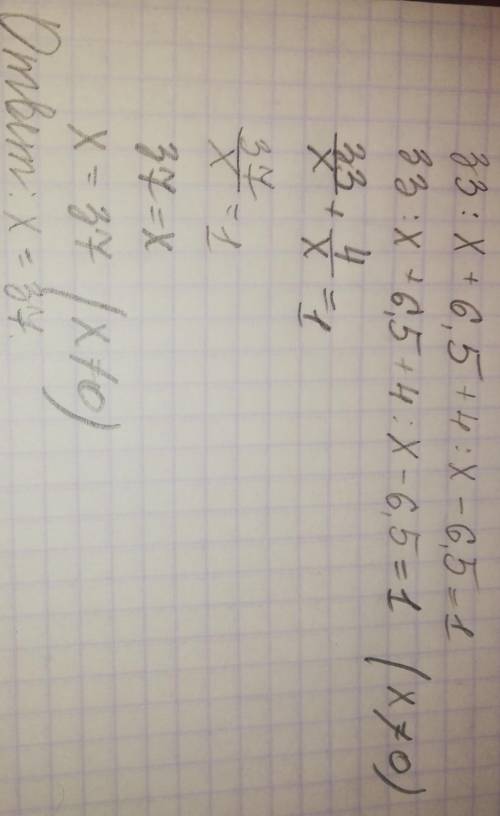 33 : x + 6,5 + 4 : x - 6,5 = 1
33 : x + 6,5 + 4 : x - 6,5 = 1 (x ≠ 0)
33/x + 4/x = 1
37/x = 1
37 = x
x = 37 (x ≠ 0)
Ответ: x = 37.